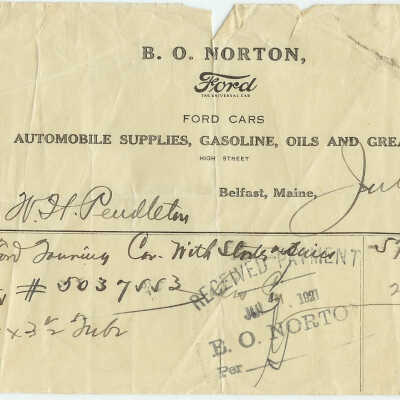 B. O. NORTON,
Ford
THE UNIVERSAL CAR
FORD CARS
AUTOMOBILE SUPPLIES, GASOLINE, OILS AND GREA
HIGH STREET
Belfast, Maine, Jul
W. H. Pendleton
Ford Touring Car With
# 5037553
RECEIVED PAYMENT
JUL
B. O. NORTO
Per